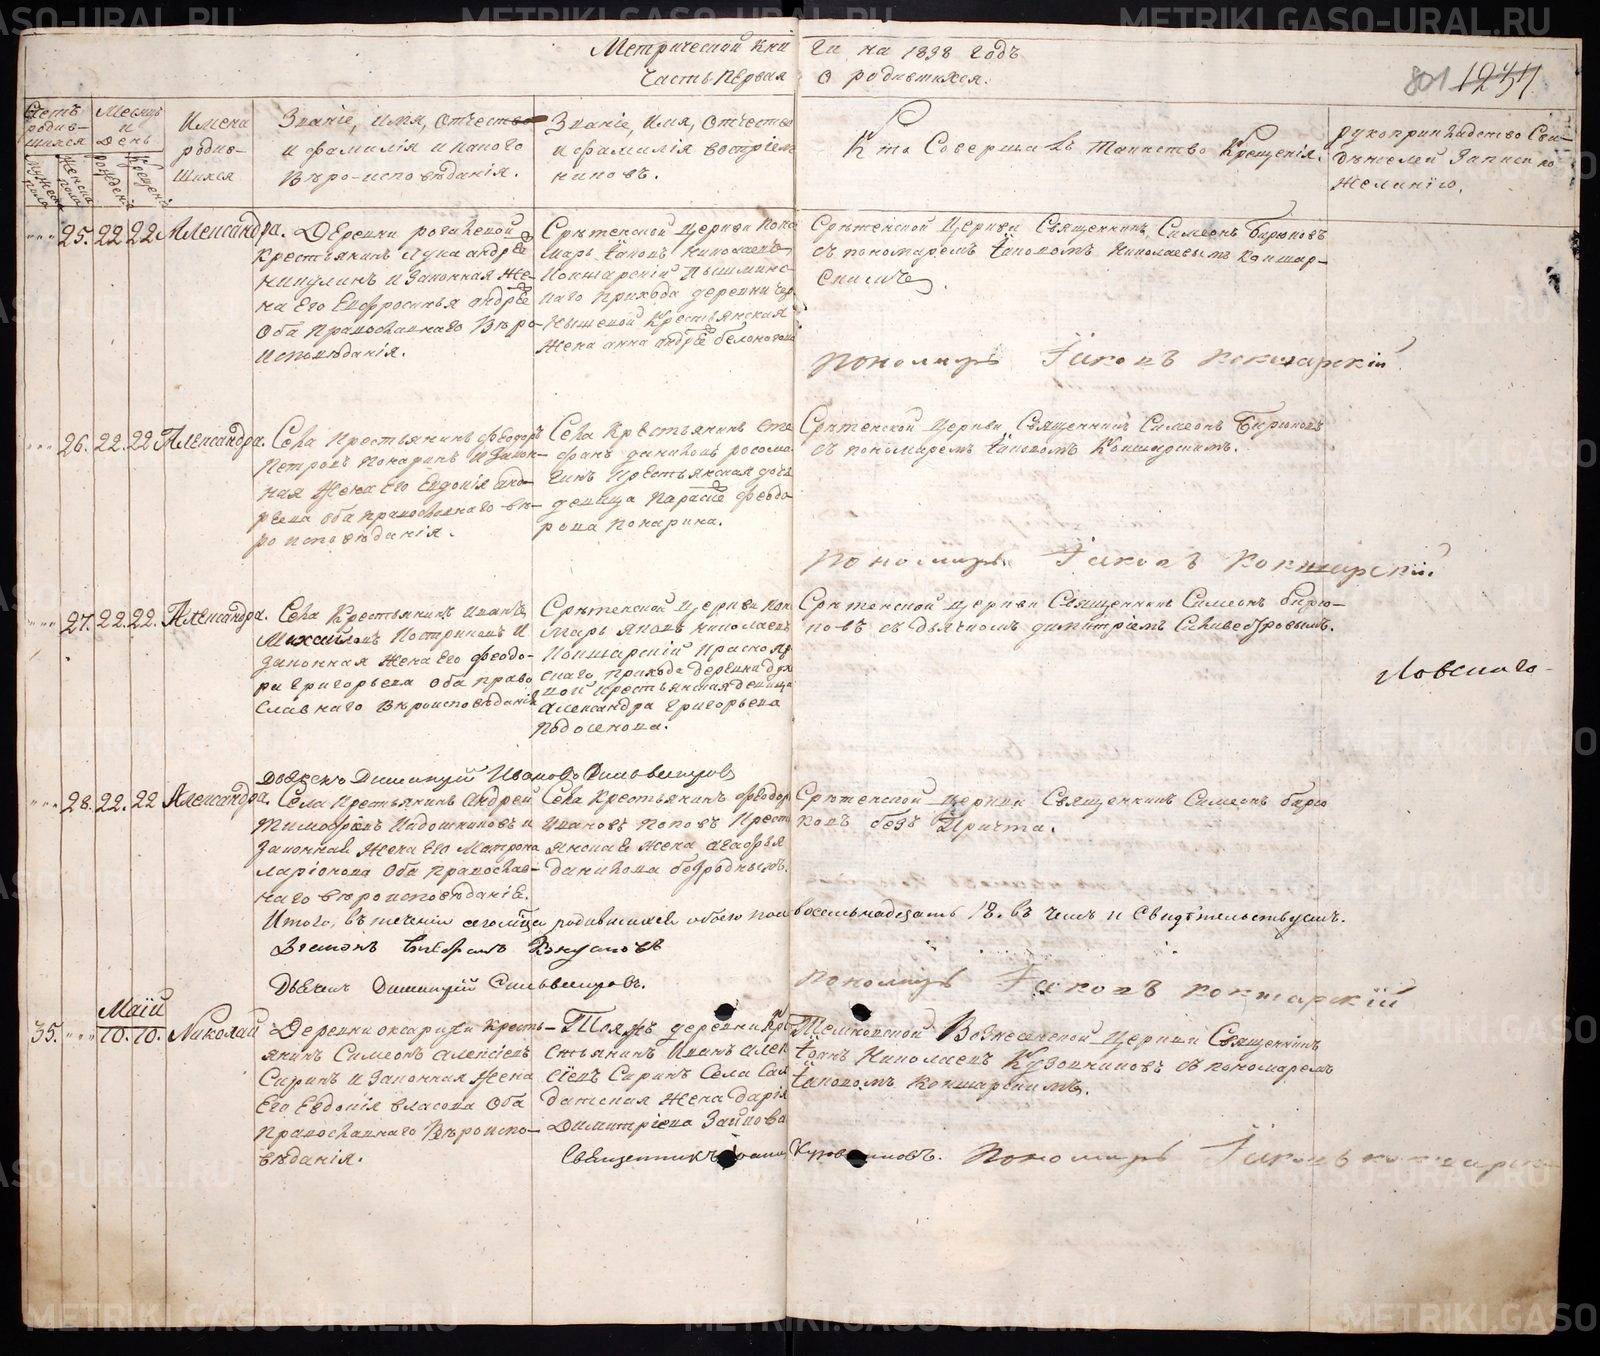 Метрической Книги на 1838 годъ
Часть Первая О родившихся.
801 1237
Счетъ родив-шихся
Мужеска пола
Женска пола
Месяцъ и День
рожденія
Крещенія
Имена родив-шихся
Званіе, имя, отчество
и фамилія и какого
Вѣро-исповѣданія.
Званіе, Имя, Отчество
и фамилія воспріем
никовъ.
Кто Совершалъ Таинство Крещенія.
рукоприкладство Сви-
дѣтелей Записи по
Желанію.
25. 22 22 Александра.
Деревни
Крестьянинъ Лука андрѣевъ
Никулинъ и Законная Же-
на Его Евфросинья андрѣева
Оба Православнаго Вѣро-
Исповѣданія.
Срѣтенской Церкви поно
марь Іаковъ Николаевъ
Кокшарскій Пышминс-
каго прихода деревни
Крестьянская
Жена анна андрѣева белоногова
Срѣтенской Церкви Священникъ Симеонъ Бирюковъ
съ пономаремъ Іаковомъ Николаевымъ Кокшар-
скимъ.
Пономарь Іаковъ Кокшарскій
26. 22. 22 Александра.
Села Крестьянинъ Феодоръ
Петровъ Понаринъ и Закон-
ная Жена Его Евдокія анд-
рѣева оба православнаго вѣ-
ро исповѣданія.
Села Крестьянинъ Сте
фанъ даниловъ росома
гинъ Крестьянская дочь
девица Параскевія феодо-
рова Понарина.
Срѣтенской Церкви Священникъ Симеонъ Бирюковъ
съ пономаремъ Іаковомъ Кокшарскимъ.
Пономарь Іаковъ Кокшарскій.
27. 22. 22. Александра.
Села Крестьянинъ Иванъ
Михайловъ Костриковъ и
законная жена его феодо-
ра Григорьева оба право
славнаго Вѣроисповѣданія
Срѣтенской Церкви поно
марь Яковъ николаевъ
Кокшарскій Красноя
скаго прихода деревни
крестьянская девица
Александра Григорьева
Подосенова.
Срѣтенской Церкви Священникъ Симеонъ бирю-
ковъ съ дьячкомъ димитріемъ Сильвестровымъ.
Ловскаго
Дьячекъ Димитрій Ивановъ Сильвестровъ
28. 22. 22 Александра.
Села Крестьянинъ Андрей
Тимофѣевъ Кадошниковъ и
Законная Жена его Матрона
ларіонова Оба Православ-
наго вѣроисповѣданія.
Села Крестьянинъ Феодоръ
Ивановъ Поповъ Крест
янская Жена агафья
данилова безродныхъ.
Срѣтенской Церкви Священникъ Симеонъ бирю
ковъ безъ Причта.
Итого, въ теченіи сего мѣсяца родившихся обоего пола восемьнадцать 18. въ чемъ и Свидѣтельствуемъ.
Діаконъ
Дьячекъ Димитрій Сильвестровъ.
Пономарь Іаковъ Кокшарскій
Маій
35. 10. 10. Николай
Деревни оксарихи Кресть-
янинъ Симеонъ Алексіевъ
Сиринъ и Законная Жена
Его Евдокія власова Оба
Православнаго Вѣроиспо-
вѣданія.
Тоя жъ деревни Кре
стьянинъ Иванъ Алек
сіевъ Сиринъ Села Сол
датская Жена Дарія
Димитріева Зайкова
Вознесенской Церкви Священникъ
Іоанъ Николаевъ Кузовниковъ съ пономаремъ
Іаковомъ Кокшарскимъ.
Священникъ Іоаннъ Кузовниковъ. Пономарь Іаковъ Кокшарскій